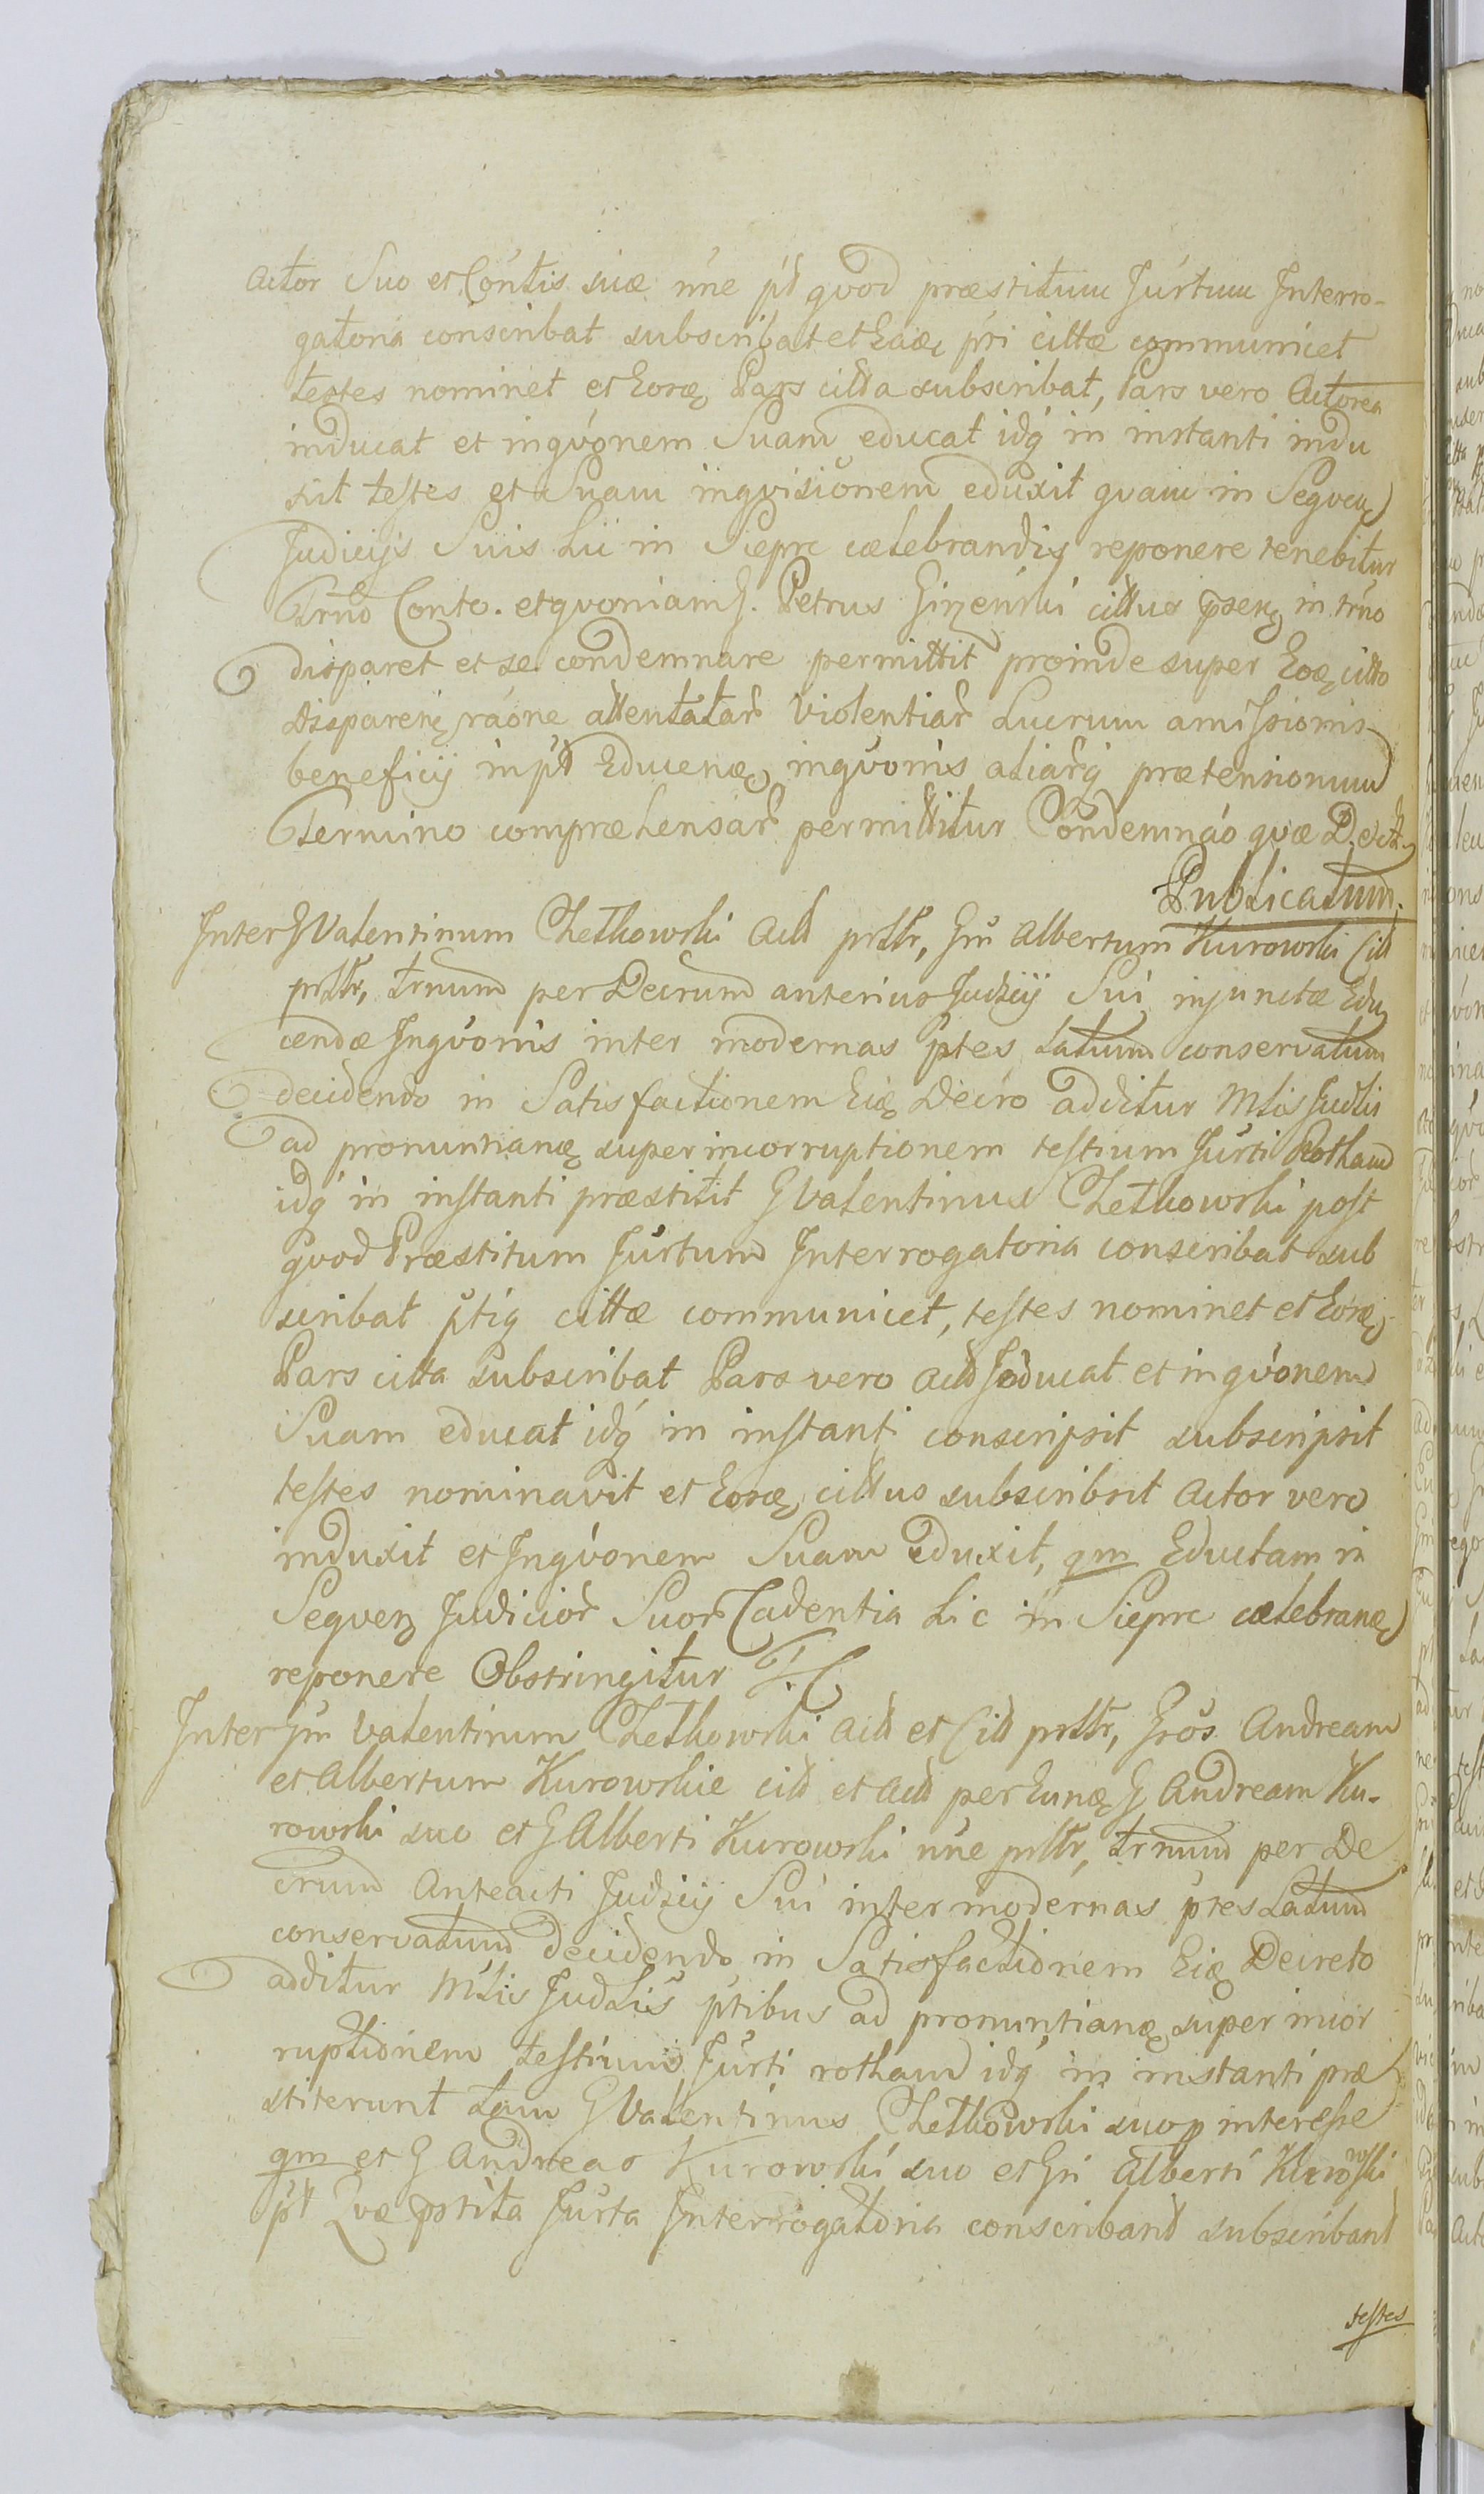 Actor Suo et Contis suæ nne pt quod præstitum Jurtum Interro-
gatoria conscribat subscribat et Eadẹ pri cittæ communicet
testes nominet et Eorẹ Pars citta subscribat, Pars vero Actorea
inducat et inqvonem Suam educat idq in instanti indu
xit testes et Suam inqvisionem eduxit qvam in Seqven
Judicijs Suis hic in Siepre cælebrandis reponere tenebitur
Trno Conto. et qvoniam G. Petrus Gizenski cittus psens in trno
disparet et se condemnare permittit proinde super Eoẹ citto
Disparenẹ raone attentatar Violentiar Lucrum amissionis
beneficij inpt Educenæ inqvonis aliarq prætensionum
Termino comprehensar permittitur Condemnao qvæ D. ect.
Publicatum.
Inter G Valentinum Chetkowski Actt prttr, Gm Albertum Kurowski Citt
prttr, trnum per Decrum anterius Judicij Sui injunctæ Edu
cendæ Inqvonis inter modernas ptes Latum conservatum
decidendo in Satisfactionem Eiẹ Decro additur Mlis Judlis
ad pronuntianẹ super incorruptionem testium Jurti Rotham
idq in instanti præstitit G Valentinus Chetkowski post
qvod Præstitum Jurtum Interrogatoria conscribat sub
scribat ptiq cittæ communicet, testes nominet et Eorẹ
Pars citta subscribat Pars vero Actt Inducat et inqvonem
Suam educat idq in instanti conscripsit subscripsit
testes nominavit et Eorẹ cittus subscribsit Actor vero
induxit et Inqvonem Suam eduxit, qm Eductam in
Seqven Judicior Suor Cadentia hic in Siepre cælebranẹ
reponere Obstringitur T. C
Inter Gm Valentinum Chetkowski Actt et Citt prttr, Gros Andream
et Albertum Kurowskie citt et Actt per Eunẹ G Andream Ku-
rowski suo et G Alberti Kurowski nne prttr, trnum per De
crum Anteacti Judicij Sui inter modernas ptes Latum
conservatum decidendo in Satisfactionem Eiẹ Decreto
additur Mlis Judlis ptibus ad pronuntianẹ super incor
ruptionem testium Jurti rotham idq in instanti præ
stiterunt tam G Valentinus Chetkowski suo p interesse
qm et G Andreas Kurowski suo et Gri Alberti Kurowski
pt Qvæ pstita Jurta Interrogatoria conscribant subscribant
testes